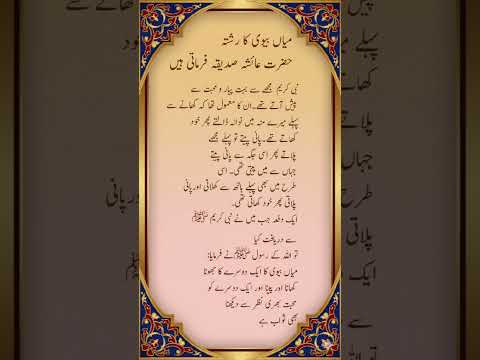 میاں بیوی کا رشتہ
حضرت عائشہ صدیقہ فرماتی ہیں
نبی کریم مجھے سے بہت پیار و محبت سے
پیش آتے تھے۔ان کا معمول تھا کہ کھانے سے
پہلے میرے منہ میں نوالہ ڈالتے پھر خود
کھاتے تھے۔پانی پیتے تو پہلے مجھے
پلاتے پھر اسی جگہ سے پانی پیتے
جہاں سے میں پیتی تھی۔ اسی
طرح میں بھی پہلے ہاتھ سے کھلاتی اور پانی
پلاتی پھر خود کھاتی تھی۔
ایک دفعہ جب میں نے نبی کریم ﷺ
سے دریافت کیا
تو اللہ کے رسول ﷺ نے فرمایا:
میاں بیوی کا ایک دوسرے کا جھوٹا
کھانا اور پینا اور ایک دوسرے کو
محبت بھری نظر سے دیکھنا
بھی ثواب ہے